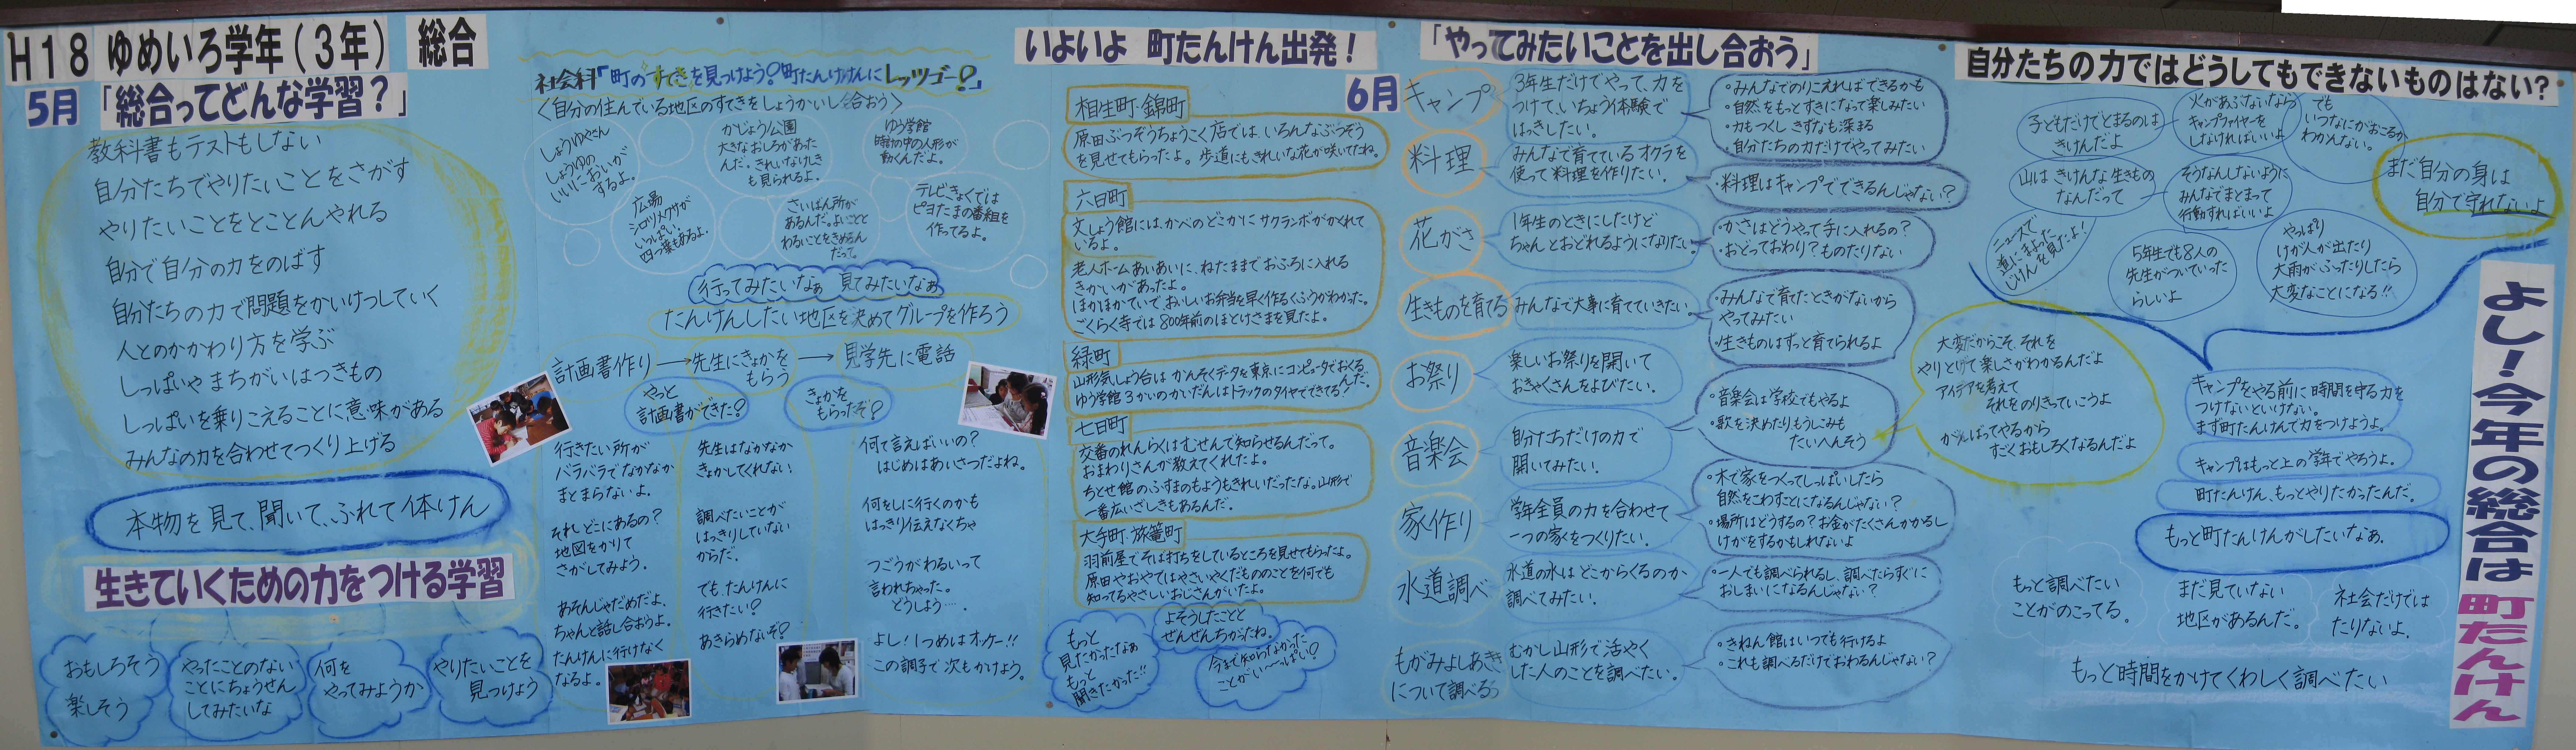 H18 ゆめいろ学年(3年) 総合
5月 「総合ってどんな学習?」
教科書もテストもしない
自分たちでやりたいことをさがす
やりたいことをとことんやれる
自分で自分の力をのばす
自分たちの力で問題をかいけつしていく
人とのかかわり方を学ぶ
しっぱいやまちがいはつきもの
しっぱいを乗りこえることに意味がある
みんなの力を合わせてつくり上げる
本物を見て、聞いて、ふれて体けん
生きていくための力をつける学習
おもしろそう
楽しそう
やったことのない
ことにちょうせん
してみたいな
何を
やってみようか
やりたいことを
見つけよう
社会科「町のすてきを見つけよう?町たんけんにレッツゴー?」
〈自分の住んでいる地区のすてきをしょうかいし合おう〉
しょうゆやさん
しょうゆの
いいにおいが
するよ。
かじょう公園
大きなおしろがあった
んだ。きれいなけしき
も見られるよ。
ゆう学館
時計の中の人形が
動くんだよ。
広場
シロツメクサが
いっぱい。
四つ葉もあるよ。
さいばん所が
あるんだ。よいことと
わるいことをきめるん
だって。
テレビきょくでは
ピヨたまの番組を
作ってるよ。
行ってみたいなぁ 見てみたいなぁ
たんけんしたい地区を決めてグループを作ろう
計画書作り→先生にきょかをもらう→見学先に電話
やっと
計画書ができた?
きょかを
もらったぞ?
行きたい所が
バラバラでなかなか
まとまらないよ。
それ、どこにあるの?
地図をかりて
さがしてみよう。
あそんじゃだめだよ、
ちゃんと話し合おうよ。
たんけんに行けなく
なるよ。
先生はなかなか
きょかしてくれない
調べたいことが
はっきりしていない
からだ。
でも、たんけんに
行きたい?
あきらめないぞ?
何て言えばいいの?
はじめはあいさつだよね。
何をしに行くのかも
はっきり伝えなくちゃ
つごうがわるいって
言われちゃった。
どうしよう…。
よし!1つめはオッケー!!
この調子で次もかけよう。
いよいよ 町たんけん出発!
相生町・錦町
原田ぶつぞうちょうこく店では、いろんなぶつぞう
を見せてもらったよ。歩道にもきれいな花が咲いてたね。
六日町
文しょう館には、かべのどこかにサクランボがかくれて
いるよ。
老人ホームあいあいに、ねたままでおふろに入れる
きかいがあったよ。
ほかほかていでおいしいお弁当を早く作るくふうがわかった。
ごくらく寺では800年前のほとけさまを見たよ。
緑町
山形気しょう台はかんそくデータを東京にコンピュータでおくるんだ。
ゆう学館3かいのかいだんはトラックのタイヤでできてる!
七日町
交番のれんらくはむせんで知らせるんだって。
おまわりさんが教えてくれたよ。
ちとせ館のふすまのもようもきれいだったな。山形で
一番広いざしきもあるんだ。
大手町・旅籠町
羽前屋でそば打ちをしているところを見せてもらったよ。
原田やおやではやさいやくだもののことを何でも
知ってるやさしいおじさんがいたよ。
もっと
見たかったなぁ
もっと
聞きたかった!!
よそうしたことと
ぜんぜんちがたね。
今まで知らなかった
ことがい~っぱい?
6月 「やってみたいことを出し合おう」
キャンプ
3年生だけでやって、力を
つけて、いちょう体験で
はっきしたい。
・みんなでのりこえればできるかも
・自然をもっとすきになって楽しみたい
・力もつくし きずなも深まる
・自分たちの力だけでやってみたい
料理
みんなで育てているオクラを
使って料理を作りたい。
・料理はキャンプでできるんじゃない?
花がさ
1年生のときにしたけど
ちゃんとおどれるようになりたい。
・かさはどうやって手に入れるの?
・おどっておわり?ものたりない
生きものを育てる
みんなで大事に育てていきたい。
・みんなで育てたときがないから
やってみたい
・生きものはずっと育てられるよ
お祭り
楽しいお祭りを開いて
おきゃくさんをよびたい。
音楽会
自分たちだけの力で
開いてみたい。
・音楽会は学校でもやるよ
・歌を決めたりもうしこみも
たいへんそう
家作り
学年全員の力を合わせて
一つの家をつくりたい。
・木で家をつくってしっぱいしたら
自然をこわすことになるんじゃない?
・場所はどうするの?お金がたくさんかかるし
けがをするかもしれないよ
水道調べ
水道の水はどこからくるのか
調べてみたい。
・一人でも調べられるし、調べたらすぐに
おしまいになるんじゃない?
もがみよしあき
について調べる
むかし山形で活やく
した人のことを調べたい。
・きねん館はいつでも行けるよ
・これも調べるだけでおわるんじゃない?
大変だからこそ それを
やりとげて楽しさがわかるんだよ
アイデアを考えて
それをのりきっていこうよ
がんばってやるから
すごくおもしろくなるんだよ
自分たちの力ではどうしてもできないものはない?
子どもだけでとまるのは
きけんだよ
火があぶないなら
キャンプファイヤーを
しなければいいよ
でも
いつなにがおこるか
わかんない。
山はきけんな生きもの
なんだって
そうなんしないように
みんなでまとまって
行動すればいいよ
ニュースで
道にまよった
じけんを見たよ!
5年生でも8人の
先生がついていった
らしいよ
やっぱり
けが人が出たり
大雨がふったりしたら
大変なことになる!!
まだ自分の身は
自分で守れないよ
キャンプをやる前に時間を守る力を
つけないといけない。
まず町たんけんで力をつけようよ。
キャンプはもっと上の学年でやろうよ。
町たんけん、もっとやりたかったんだ。
もっと町たんけんがしたいなぁ。
もっと調べたい
ことがのこってる。
まだ見ていない
地区があるんだ。
社会だけでは
たりないよ。
もっと時間をかけてくわしく調べたい
よし!今年の総合は町たんけん